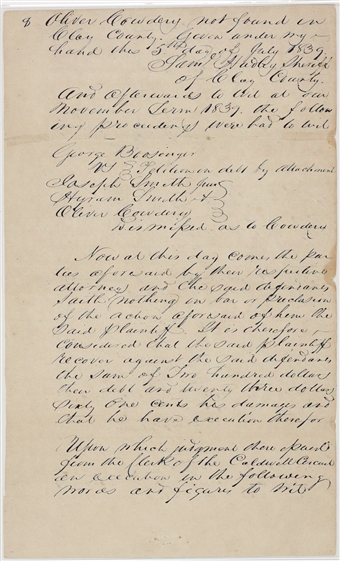 8 Oliver Cowdery not found in
Clay County. Given under my
hand this 5th day of July 1839.
Saml Hadley Sheriff
of Clay County.
And afterwards to wit at our
November Term 1839. the follow
ing proceedings were had to wit
George Boosinger
vs Petition in debt by attachment
Joseph Smith Jun
Hyram Smith &
Oliver Cowdery
Dismissed as to Cowdery
Now at this day comes the par
ties aforesaid by their respective
attorneys and the said defendants
saith nothing in bar or preclusion
of the action aforesaid of him the
said plaintiff. It is therefore
considered that the said plaintiff
recover against the said defendants
the sum of Two hundred dollars
their debt and twenty three dollars
sixty one cents his damages and
that he have execution therefor
Upon which judgment there issued
from the Clerk of the Caldwell Circuit
an execution in the following
words and figures to wit